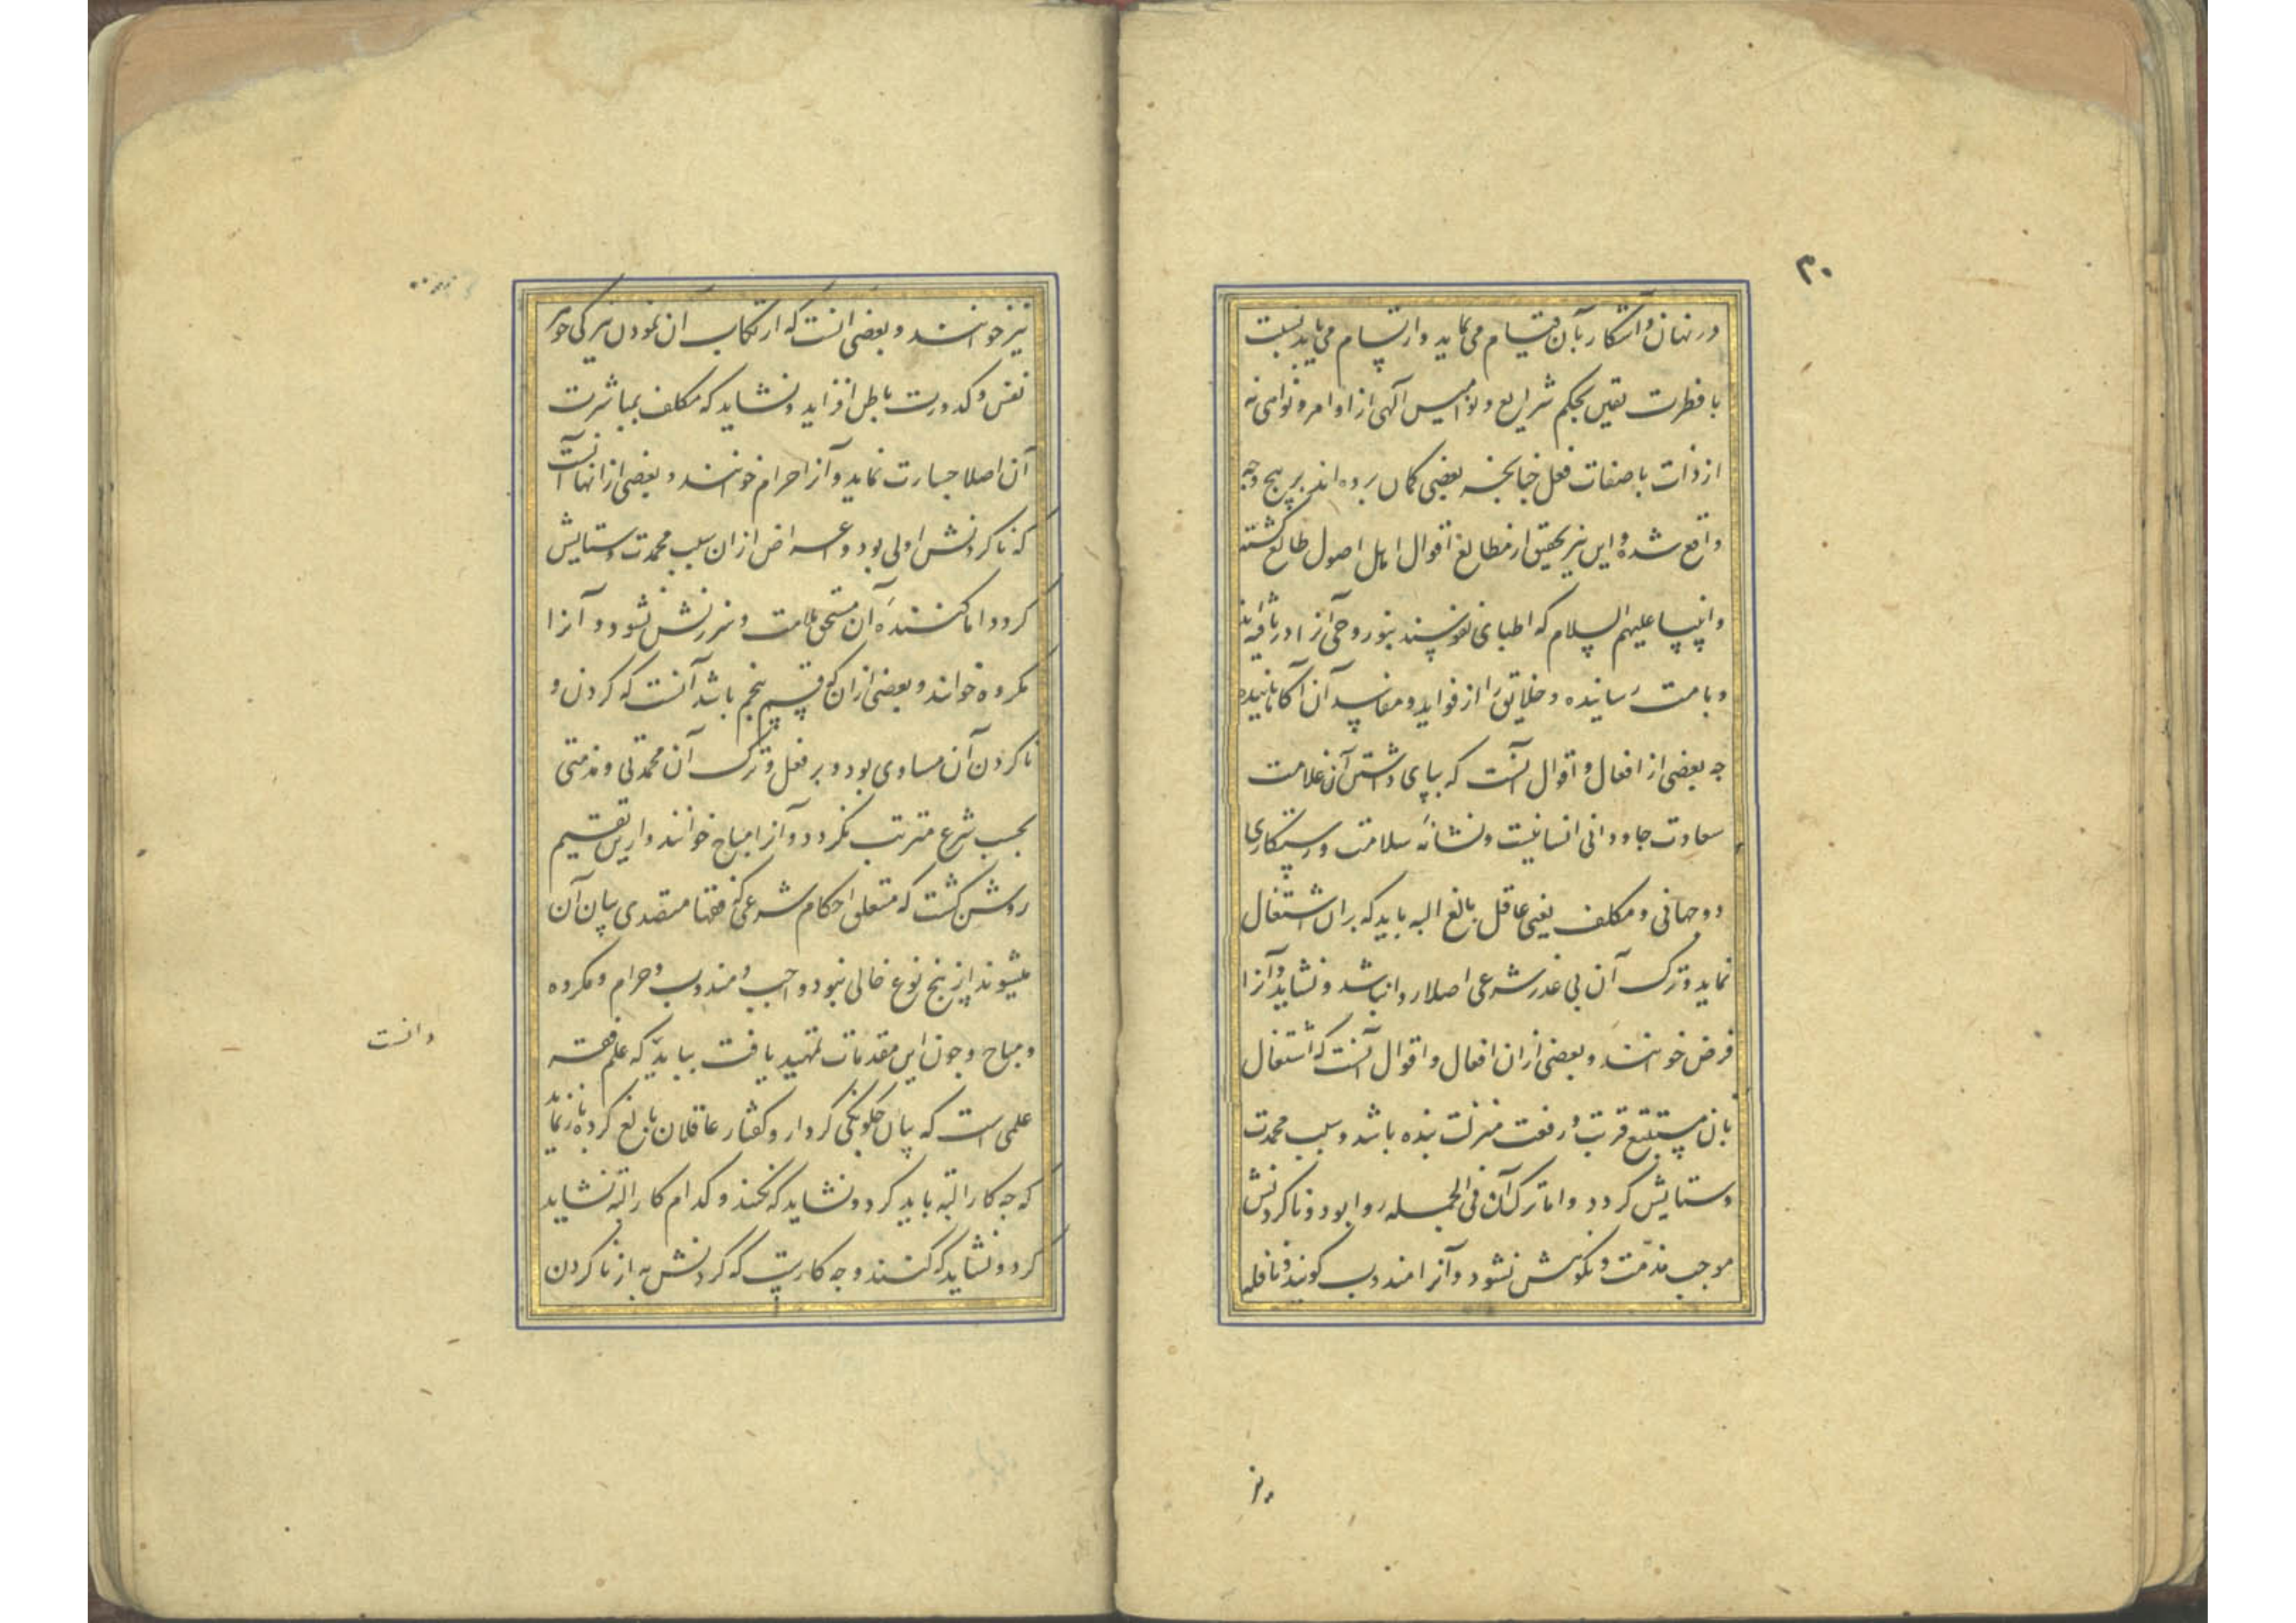 ۳۰
در نهان و آشکار بآن قیام می نماید و ارتسام می یابد نسبت
با فطرت یقین بحکم شرایع و نوامیس الهی از اوامر و نواهی نه
از ذات با صفات فعل چنانچه بعضی کمان برده اند بر پنج وجه
واقع شده و این نیز بتحقیق از مطالع اقوال اهل اصول طالع کشته
وانبیا علیهم السلام که اطبای نفوسند بنور وحی آنرا دریافته اند
و بامت رسانیده و خلایق را از فواید و مفاسد آن آکاهانیده
چه بعضی از افعال و اقوال آنست که بپای داشتن آن علامت
سعادت جاودانی انسانیست و نشانهٔ سلامت و رستکاری
دو جهانی و مکلف یعنی عاقل بالغ البته باید که بران اشتغال
نماید و ترک آن بی عذر شرعی اصلا روا نباشد و نشاید و آنرا
فرض خوانند و بعضی ازان افعال و اقوال آنست که اشتغال
بان مستتبع قربت و رفعت منزلت بنده باشد و سبب محمدت
و ستایش کردد و اما ترک آن فی الجمله روا بود و ناکردنش
موجب مذمت و نکوهش نشود و آنرا مندوب کویند و نافله
نیز
نیز خوانند و بعضی آنست که ارتکاب آن نمودن تیرکی جوهر
نفس و کدورت باطن افزاید و نشاید که مکلف بمباشرت
آن اصلا جسارت نماید و آنرا حرام خوانند و بعضی ازانها آنست
که ناکردنش اولی بود و اعراض ازان سبب محمدت و ستایش
کردد اما کنندهٔ آن مستحق ملامت و سرزنش نشود و آنرا
مکروه خوانند و بعضی ازان که قسم پنجم باشد آنست که کردن و
ناکردن آن مساوی بود و بر فعل و ترک آن محمدتی و مذمتی
بحسب شرع مترتب نکردد و آنرا مباح خوانند و ازین تقسیم
روشن کشت که متعلق احکام شرعی که فقها متصدی بیان آن
میشوند ازین پنج نوع خالی نبود واجب و مندوب و حرام و مکروه
و مباح و چون این مقدمات تمهید یافت بباید دانست که علم فقه
علمی است که بیان چکونکی کردار و کفتار عاقلان بالغ کرده باز نماید
که چه کار البته باید کرد و نشاید که نکنند و کدام کار البته نشاید
کرد و نشاید که کنند و چه کاریست که کردنش به از ناکردن